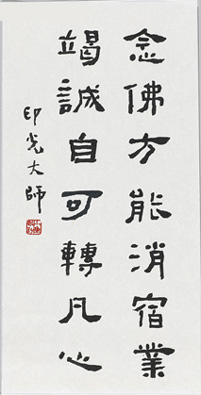 念佛方能消宿業
竭誠自可轉凡心
印光大師